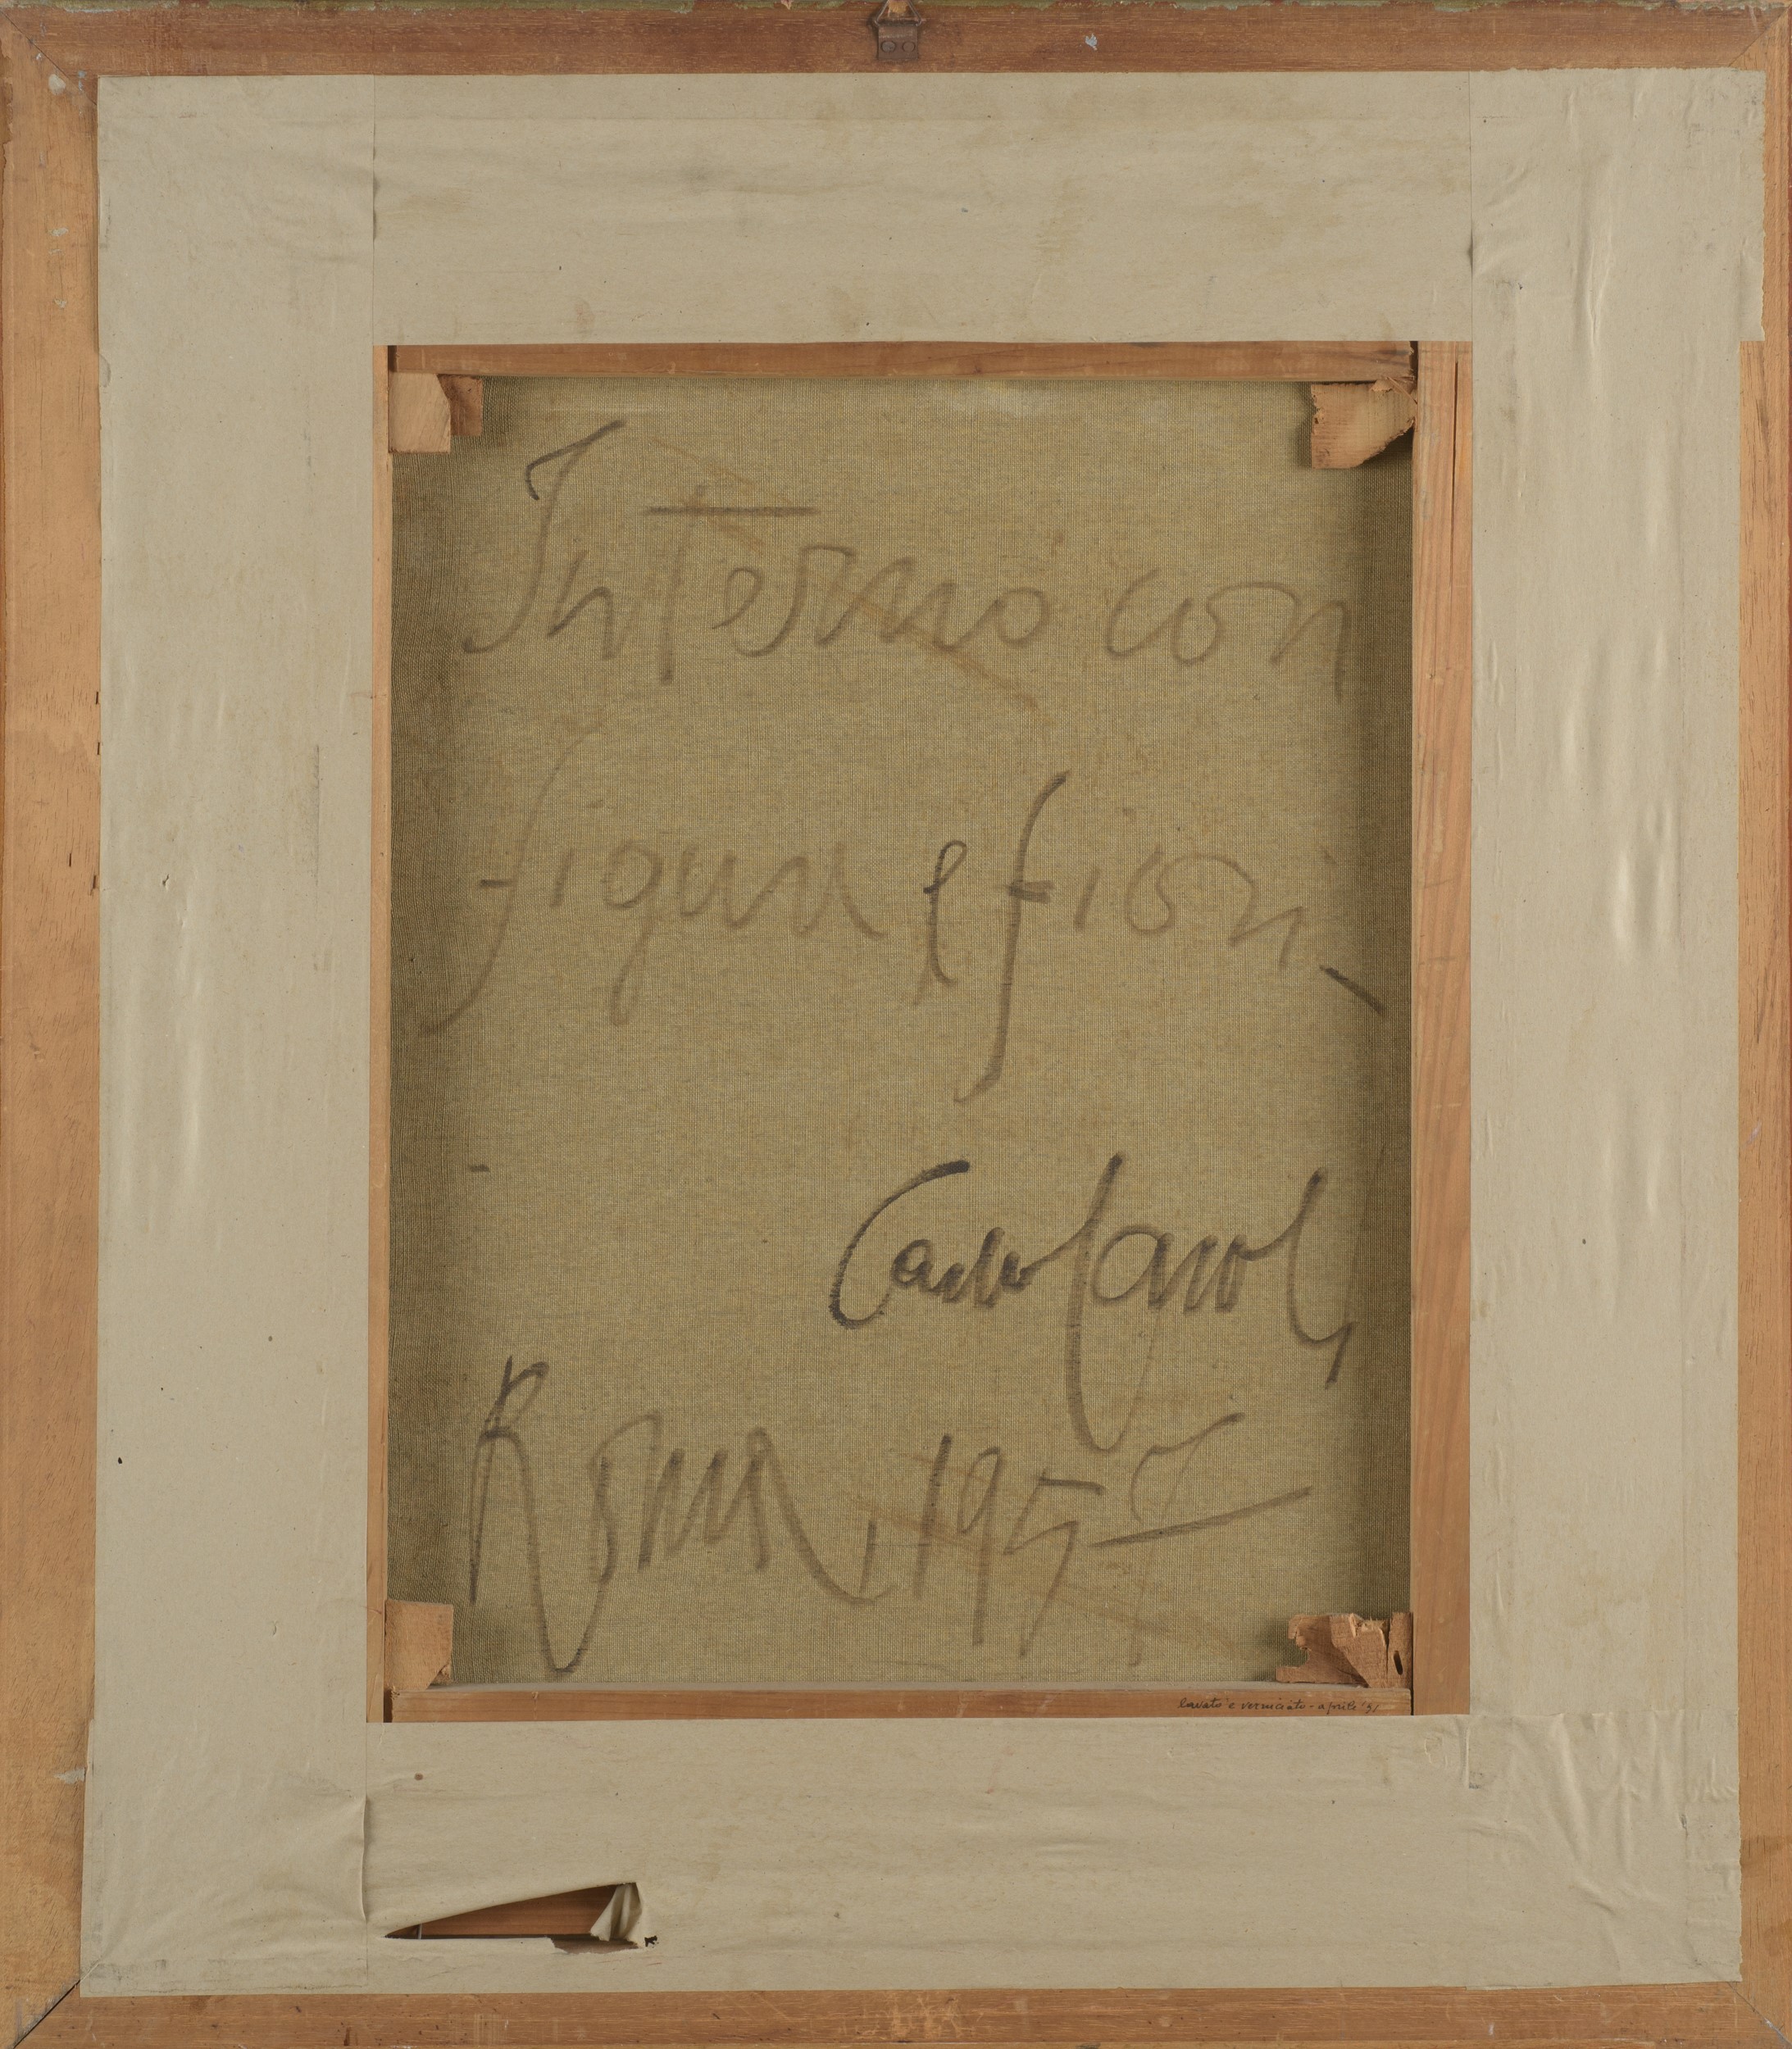 Interno con
figura e fiori
Carlo
Roma, 1957
lavato e verniciato - aprile